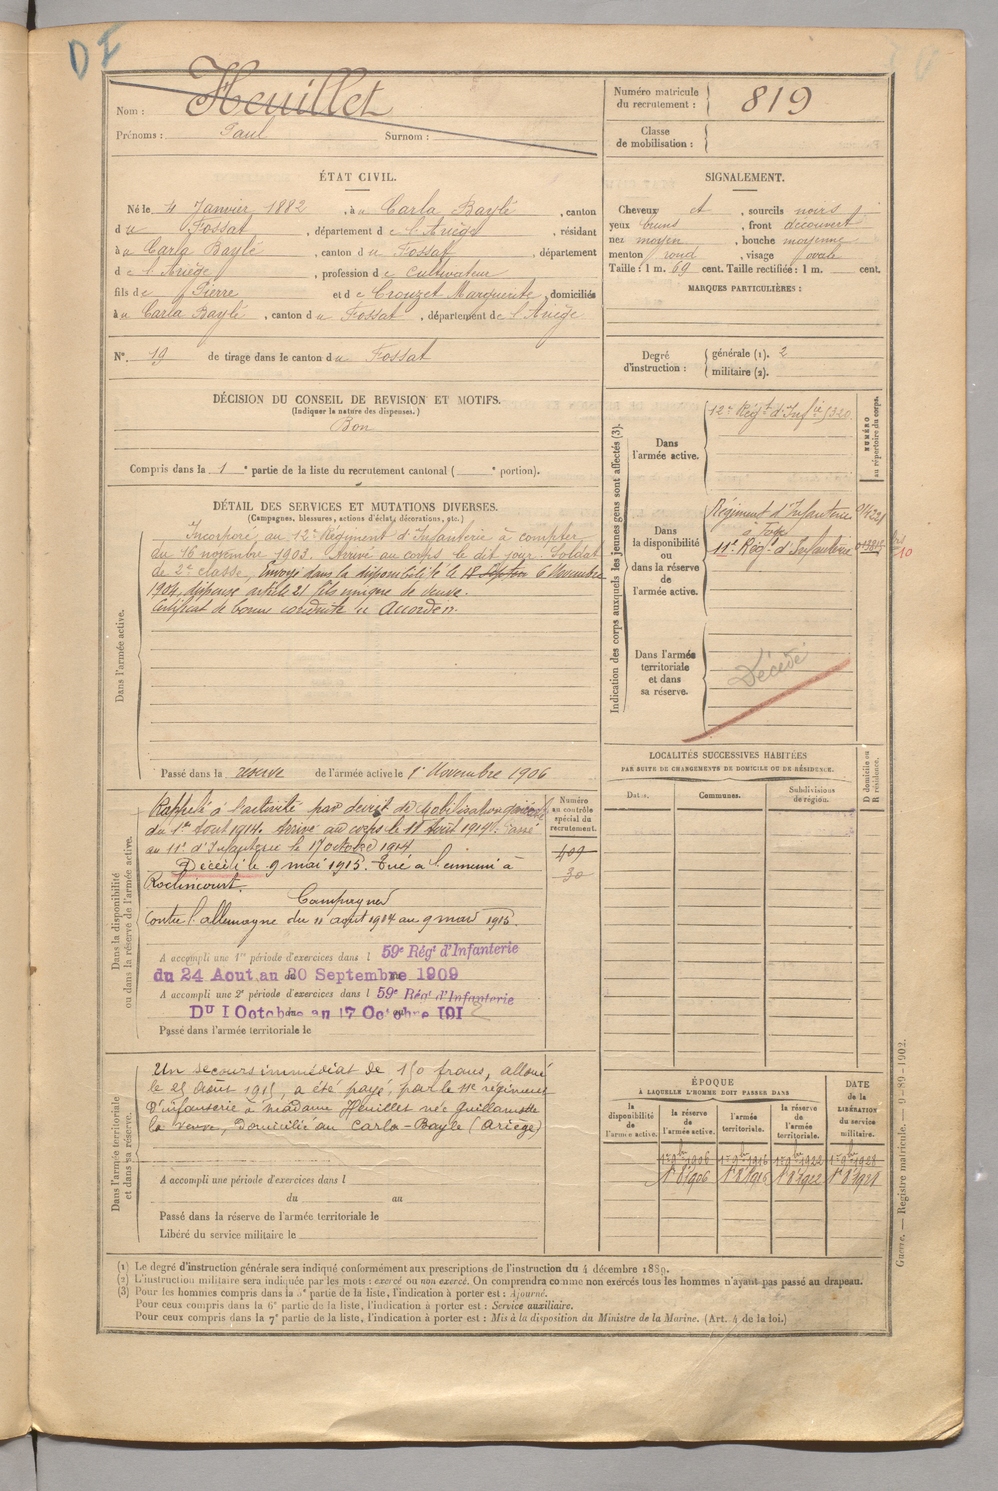 DI
Nom : Heuillet
Prénoms : Paul Surnom :
Numéro matricule
du recrutement : 819
Classe
de mobilisation :
ÉTAT CIVIL.
Né le 4 Janvier 1882, à u Carla Baylé, canton
du Fossat, département de l'Ariège, résidant
à u Carla Baylé, canton du Fossat, département
de l'Ariège, profession de cultivateur
fils de Pierre et de Crouzet Marguerite, domiciliés
à u Carla Baylé, canton du Fossat, département de l'Ariège
N°. 19 de tirage dans le canton du Fossat
SIGNALEMENT.
Cheveux et, sourcils noirs
yeux bruns, front découvert
nez moyen, bouche moyenne
menton rond, visage ovale
Taille : 1 m. 69 cent. Taille rectifiée : 1 m. cent.
MARQUES PARTICULIÈRES :
Degré
d'instruction :
générale (1). 2
militaire (2).
DÉCISION DU CONSEIL DE REVISION ET MOTIFS.
(Indiquer la nature des dispenses.)
Bon
Compris dans la 1e partie de la liste du recrutement cantonal ( e portion).
DÉTAIL DES SERVICES ET MUTATIONS DIVERSES.
(Campagnes, blessures, actions d'éclat, décorations, etc.)
Dans l'armée active.
Incorporé au 12e Régiment d'Infanterie à compter
du 16 novembre 1903. Arrivé au corps le dit jour. Soldat
de 2e classe, Envoyé dans la disponibilité le 18 6 Novembre
1904, dispensé article 21 fils unique de veuve.
Certificat de bonne conduite "Accordé".
Passé dans la réserve de l'armée active le 1r Novembre 1906
Indication des corps auxquels les jeunes gens sont affectés (3).
NUMÉRO
au répertoire du corps.
Dans
l'armée active.
12e Régt d'Infie 5320
Dans
la disponibilité
ou
dans la réserve
de
l'armée active.
Régiment d'Infanterie
à Foix
11e Régt d'Infanterie
10
Dans l'armée
territoriale
et dans
sa réserve.
Décédé
Dans la disponibilité
ou dans la réserve de l'armée active.
Rappelé à l'activité par décret de mobilisation générale
du 1er Aout 1914. Arrivé au corps le 11 Août 1914. Passé
au 11e d'Infanterie le 17 octobre 1914
Décédé le 9 mai 1915. Tué à l'ennemi à
Roclincourt.
Campagnes
Contre l'allemagne du 11 août 1914 au 9 mai 1915.
Numéro
au contrôle
spécial du
recrutement.
409
30
A accompli une 1re période d'exercices dans l 59e Régt d'Infanterie
du 24 Aout au 20 Septembre 1909
A accompli une 2e période d'exercices dans l 59e Régt d'Infanterie
DU 1 Octobre au 17 Octobre 191
Passé dans l'armée territoriale le
LOCALITÉS SUCCESSIVES HABITÉES
PAR SUITE DE CHANGEMENTS DE DOMICILE OU DE RÉSIDENCE.
Dates.
Communes.
Subdivisions
de région.
D domicile ou
R résidence.
Dans l'armée territoriale
et dans sa réserve.
Un secours immédiat de 150 francs, alloué
le 25 Août 1915, a été payé, par le 11e régiment
d'infanterie à madame Heuillet née Guillamotte
la veuve, domiciliée au Carla-Bayle (Ariège)
A accompli une période d'exercices dans l
du au
Passé dans la réserve de l'armée territoriale le
Libéré du service militaire le
ÉPOQUE
À LAQUELLE L'HOMME DOIT PASSER DANS
DATE
de la
LIBÉRATION
du service
militaire.
la
disponibilité
de
l'armée active.
la réserve
de
l'armée active.
l'armée
territoriale.
la réserve
de
l'armée
territoriale.
1r 9bre 1906 1r 9bre 1916 1r 9bre 1922 1r 9bre 1928
(1) Le degré d'instruction générale sera indiqué conformément aux prescriptions de l'instruction du 4 décembre 1889.
(2) L'instruction militaire sera indiquée par les mots : exercé ou non exercé. On comprendra comme non exercés tous les hommes n'ayant pas passé au drapeau.
(3) Pour les hommes compris dans la 5e partie de la liste, l'indication à porter est : Ajourné.
Pour ceux compris dans la 6e partie de la liste, l'indication à porter est : Service auxiliaire.
Pour ceux compris dans la 7e partie de la liste, l'indication à porter est : Mis à la disposition du Ministre de la Marine. (Art. 4 de la loi.)
Guerre. — Registre matricule. — 9-89-1902.